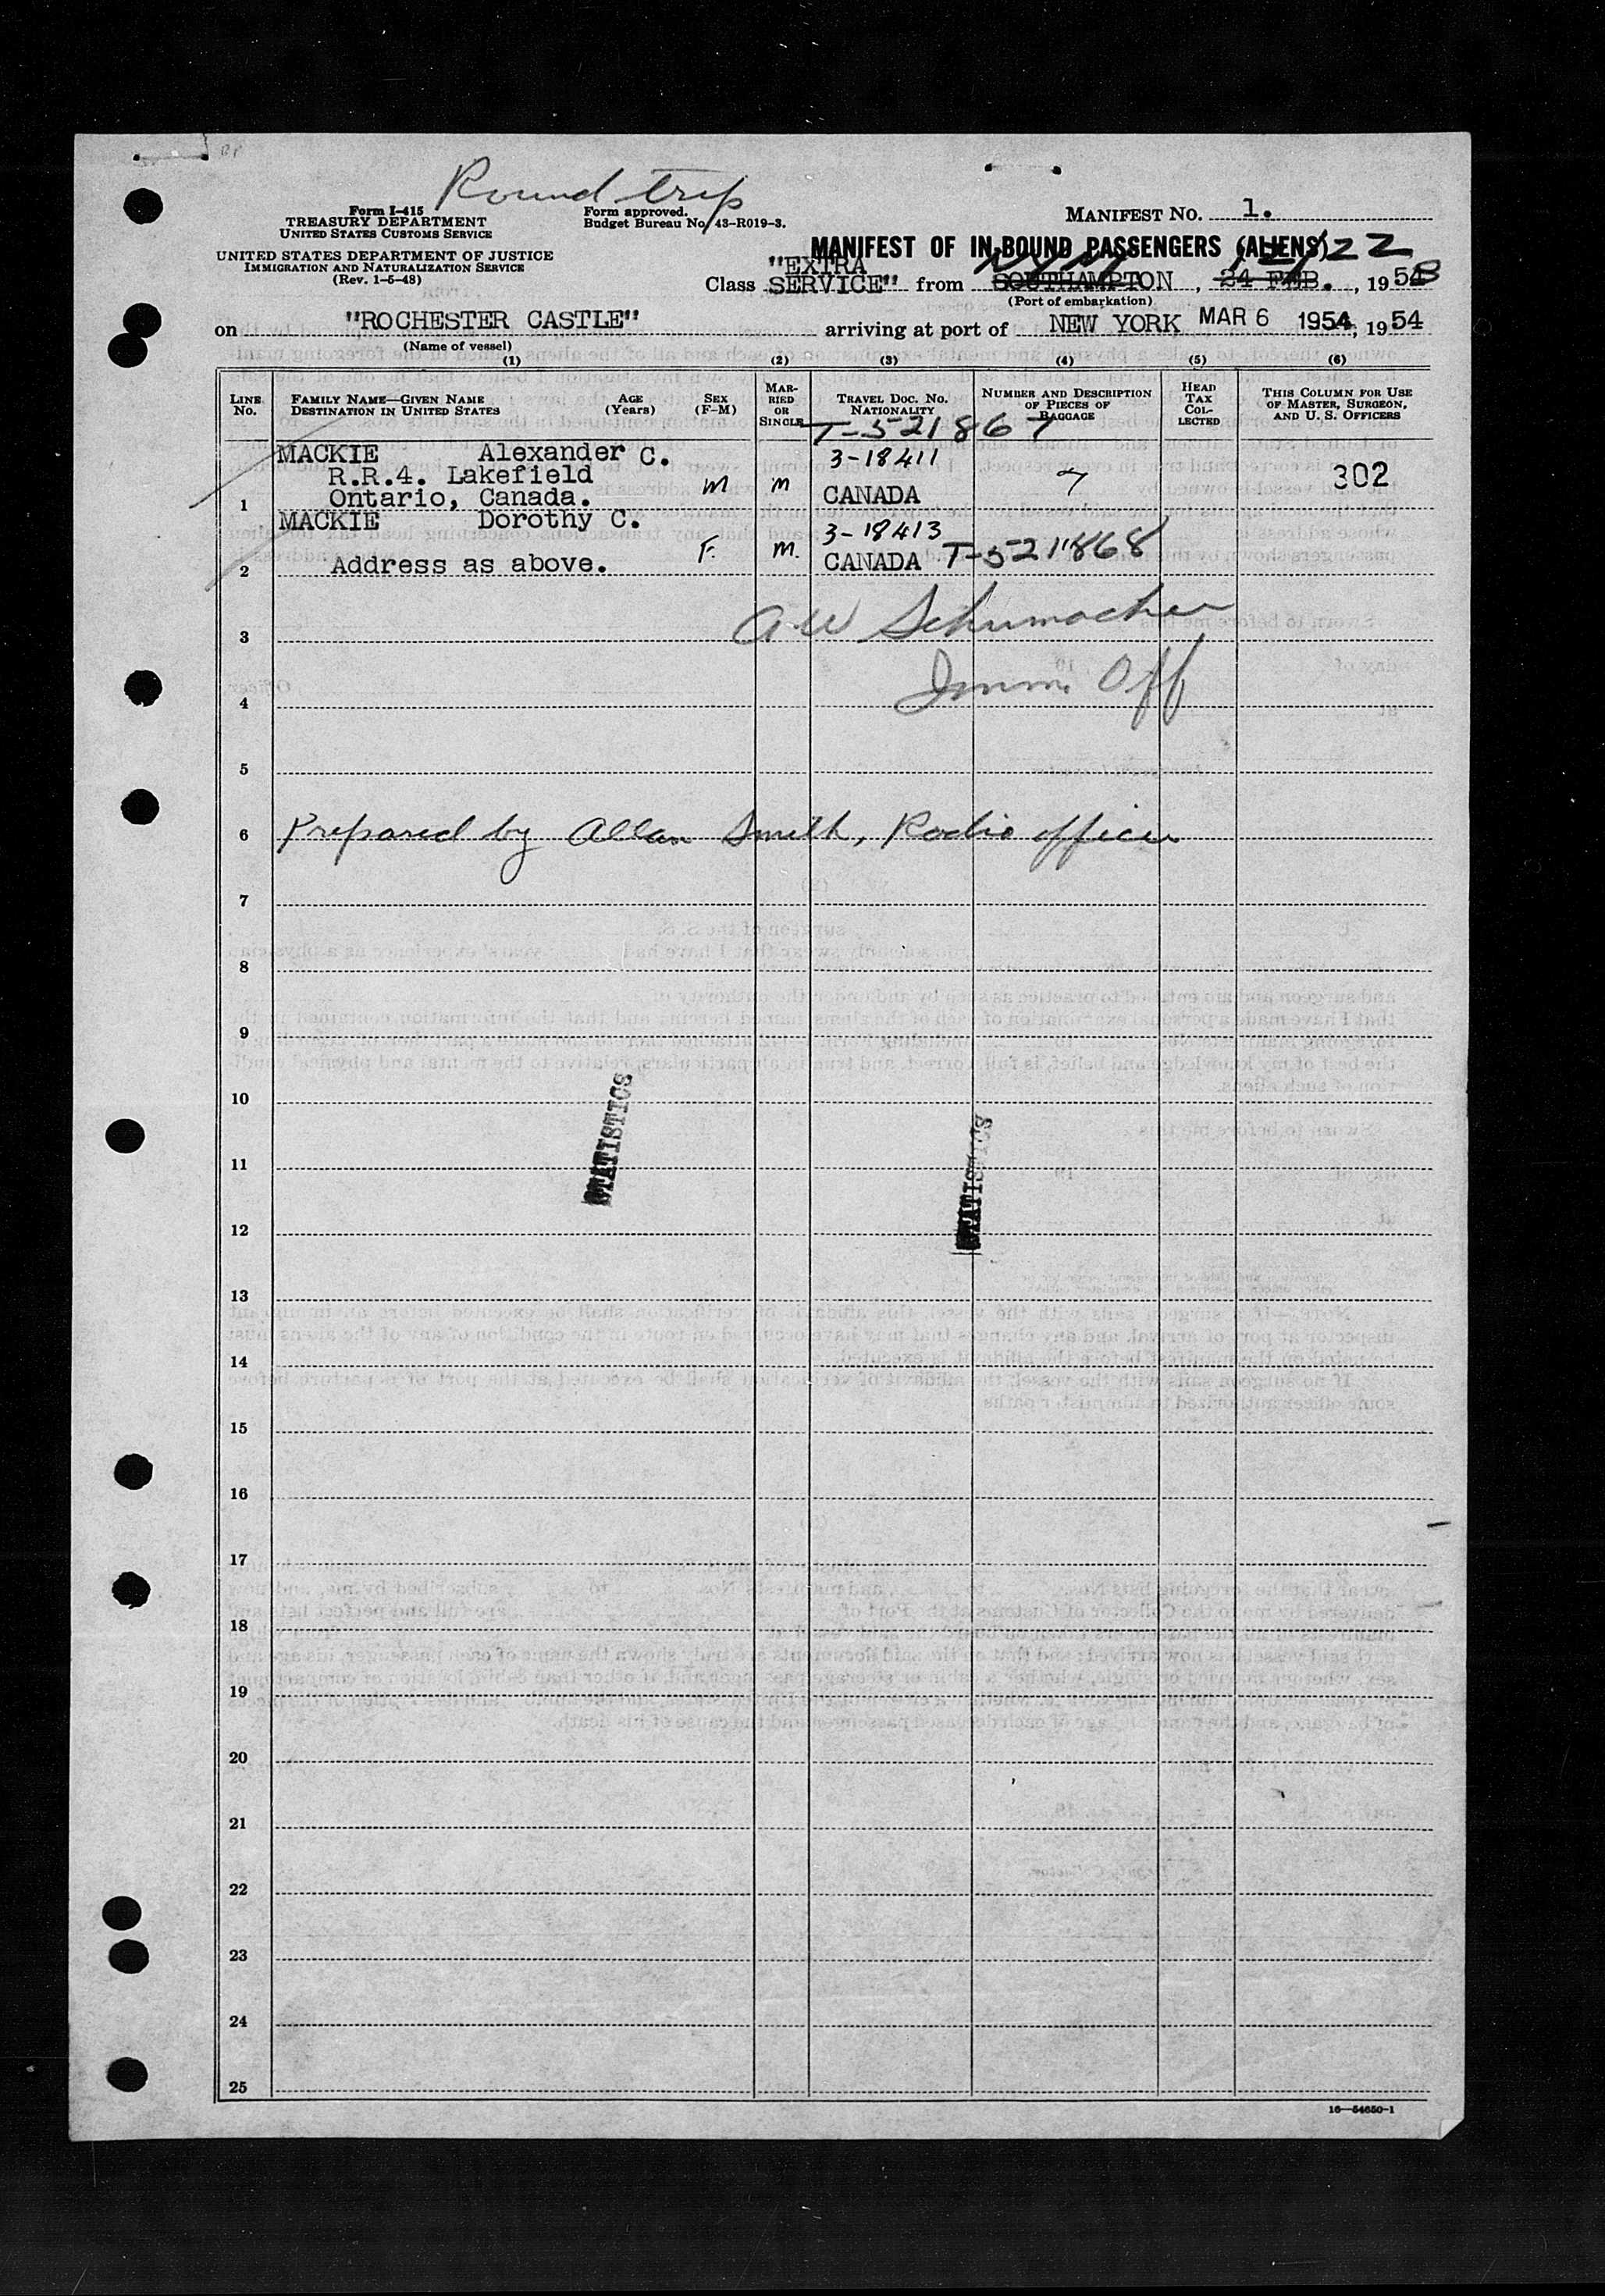 Round trip
Form I-415
TREASURY DEPARTMENT
UNITED STATES CUSTOMS SERVICE
UNITED STATES DEPARTMENT OF JUSTICE
IMMIGRATION AND NATURALIZATION SERVICE
(Rev. 1-5-48)
Form approved.
Budget Bureau No. 43-R019-3.
MANIFEST NO. 1.
MANIFEST OF IN-BOUND PASSENGERS (ALIENS)
Class "EXTRA SERVICE" from SOUTHAMPTON, 24 FEB., 1953
(Port of embarkation)
on "ROCHESTER CASTLE" arriving at port of NEW YORK MAR 6 1954, 1954
(Name of vessel)
(1) (2) (3) (4) (5) (6)
LINE NO. FAMILY NAME—GIVEN NAME DESTINATION IN UNITED STATES AGE (Years) SEX (F-M) MARRIED OR SINGLE TRAVEL DOC. NO. NATIONALITY NUMBER AND DESCRIPTION OF PIECES OF BAGGAGE HEAD TAX COLLECTED THIS COLUMN FOR USE OF MASTER, SURGEON, AND U. S. OFFICERS
T-521867
MACKIE Alexander C. 3-18411
R.R.4. Lakefield M M 7 302
1 Ontario, Canada. CANADA
MACKIE Dorothy C. 3-18413
F. M.
2 Address as above. CANADA T-521868
3 A W Schumacher
4 Imm. Off
5
6 Prepared by Allan Smith, Radio officer
7
8
9
10
11
12
STATISTICS
STATISTICS
13
14
15
16
17
18
19
20
21
22
23
24
25
16—54650-1